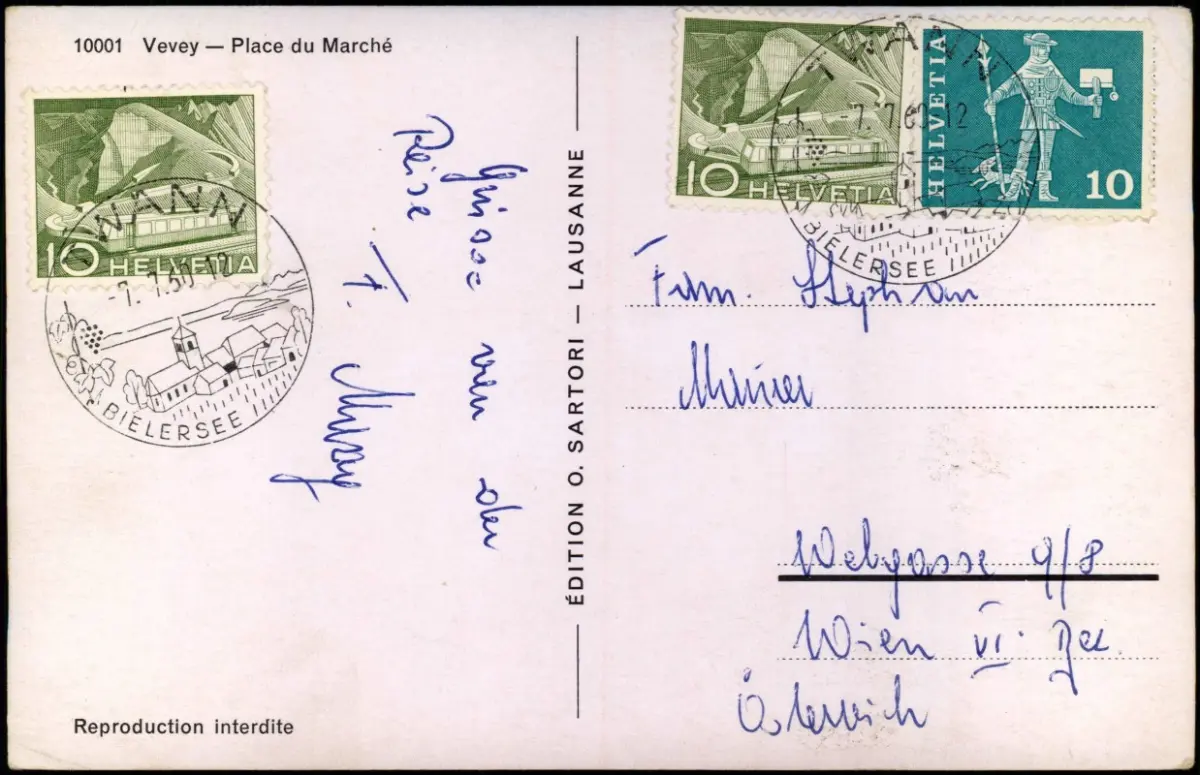 10001 Vevey — Place du Marché
10 HELVETIA
TWANN
-7. 7.60-12
BIELERSEE
Grüsse von der
Reise
F.
Reproduction interdite
ÉDITION O. SARTORI — LAUSANNE
10 HELVETIA
HELVETIA
10
TWANN
-7. 7.60-12
BIELERSEE
Fam. Stephan
Webgasse 9/8
Wien VI. Bez.
Österreich